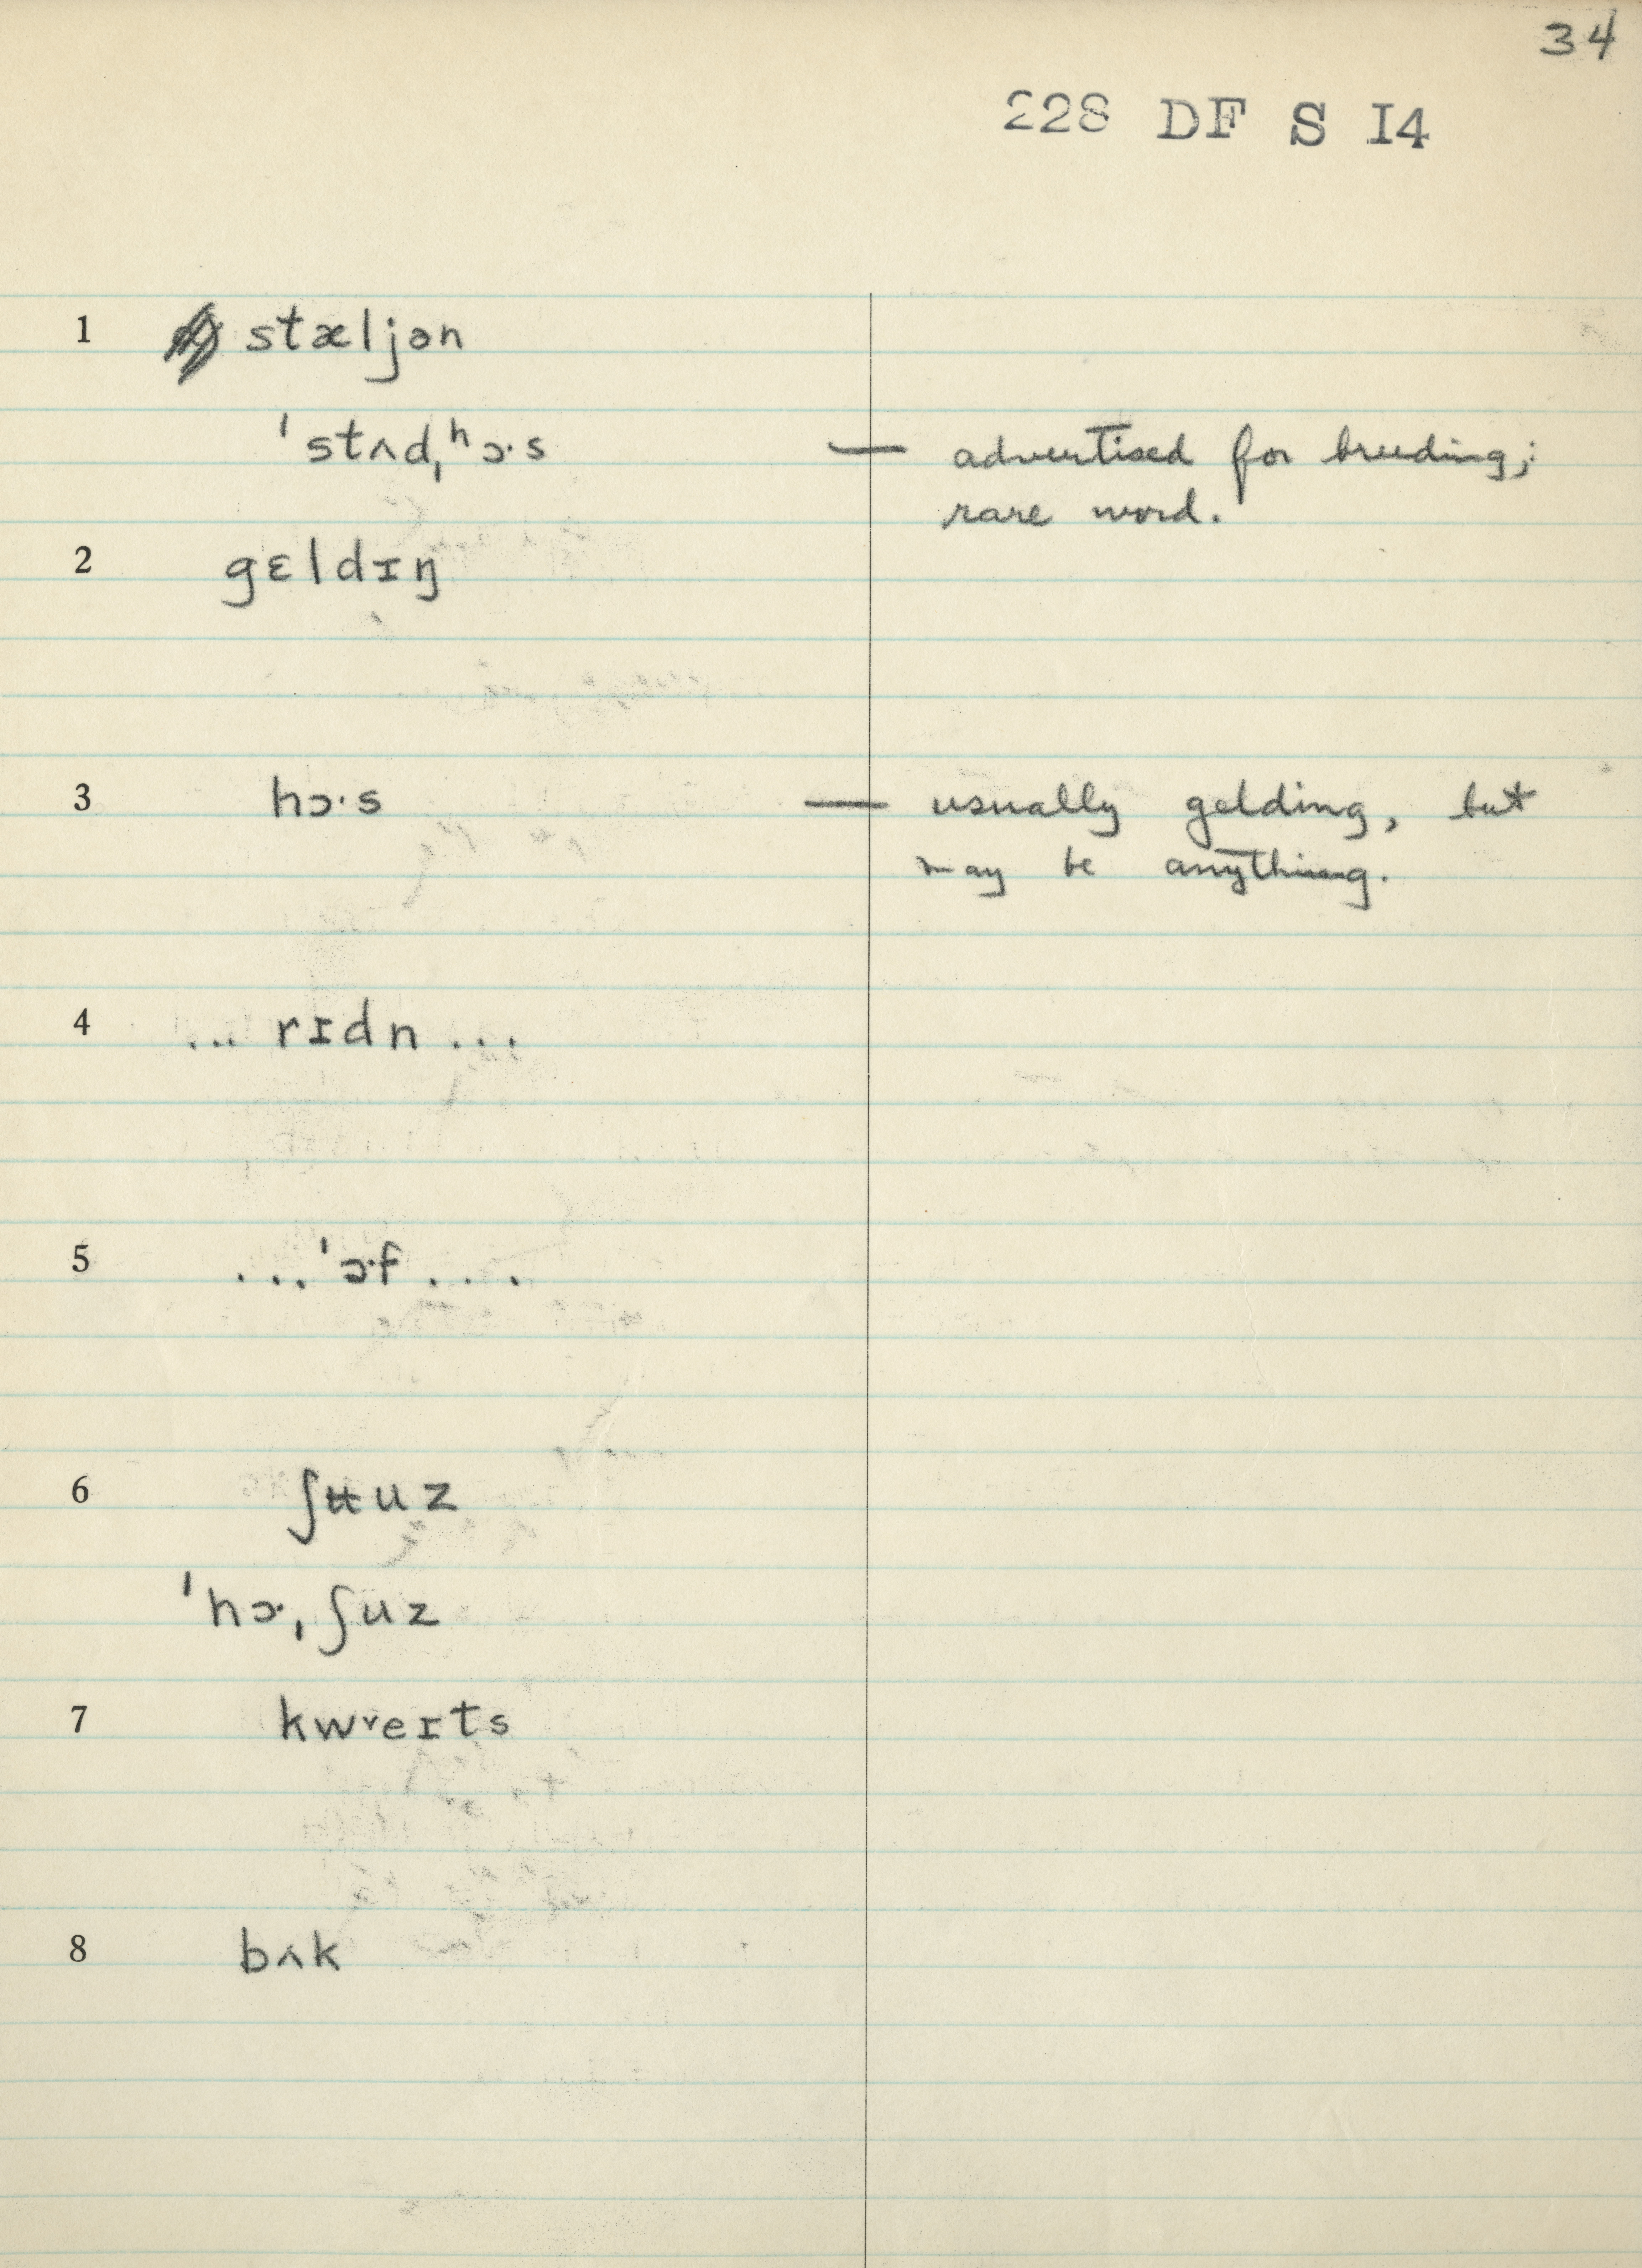 34
228 DF S I4
1 stæljən
ˈstʌdˌʰɔ·s — advertised for breeding;
rare word.
2 gɛldɪŋ
3 hɔ·s — usually gelding, but
may be anything.
4 ... rɪdn ...
5 ... ˈɔ·f ....
6 ʃʉuz
ˈhɔ·ˌʃuz
7 kwᵛeɪts
8 bʌk